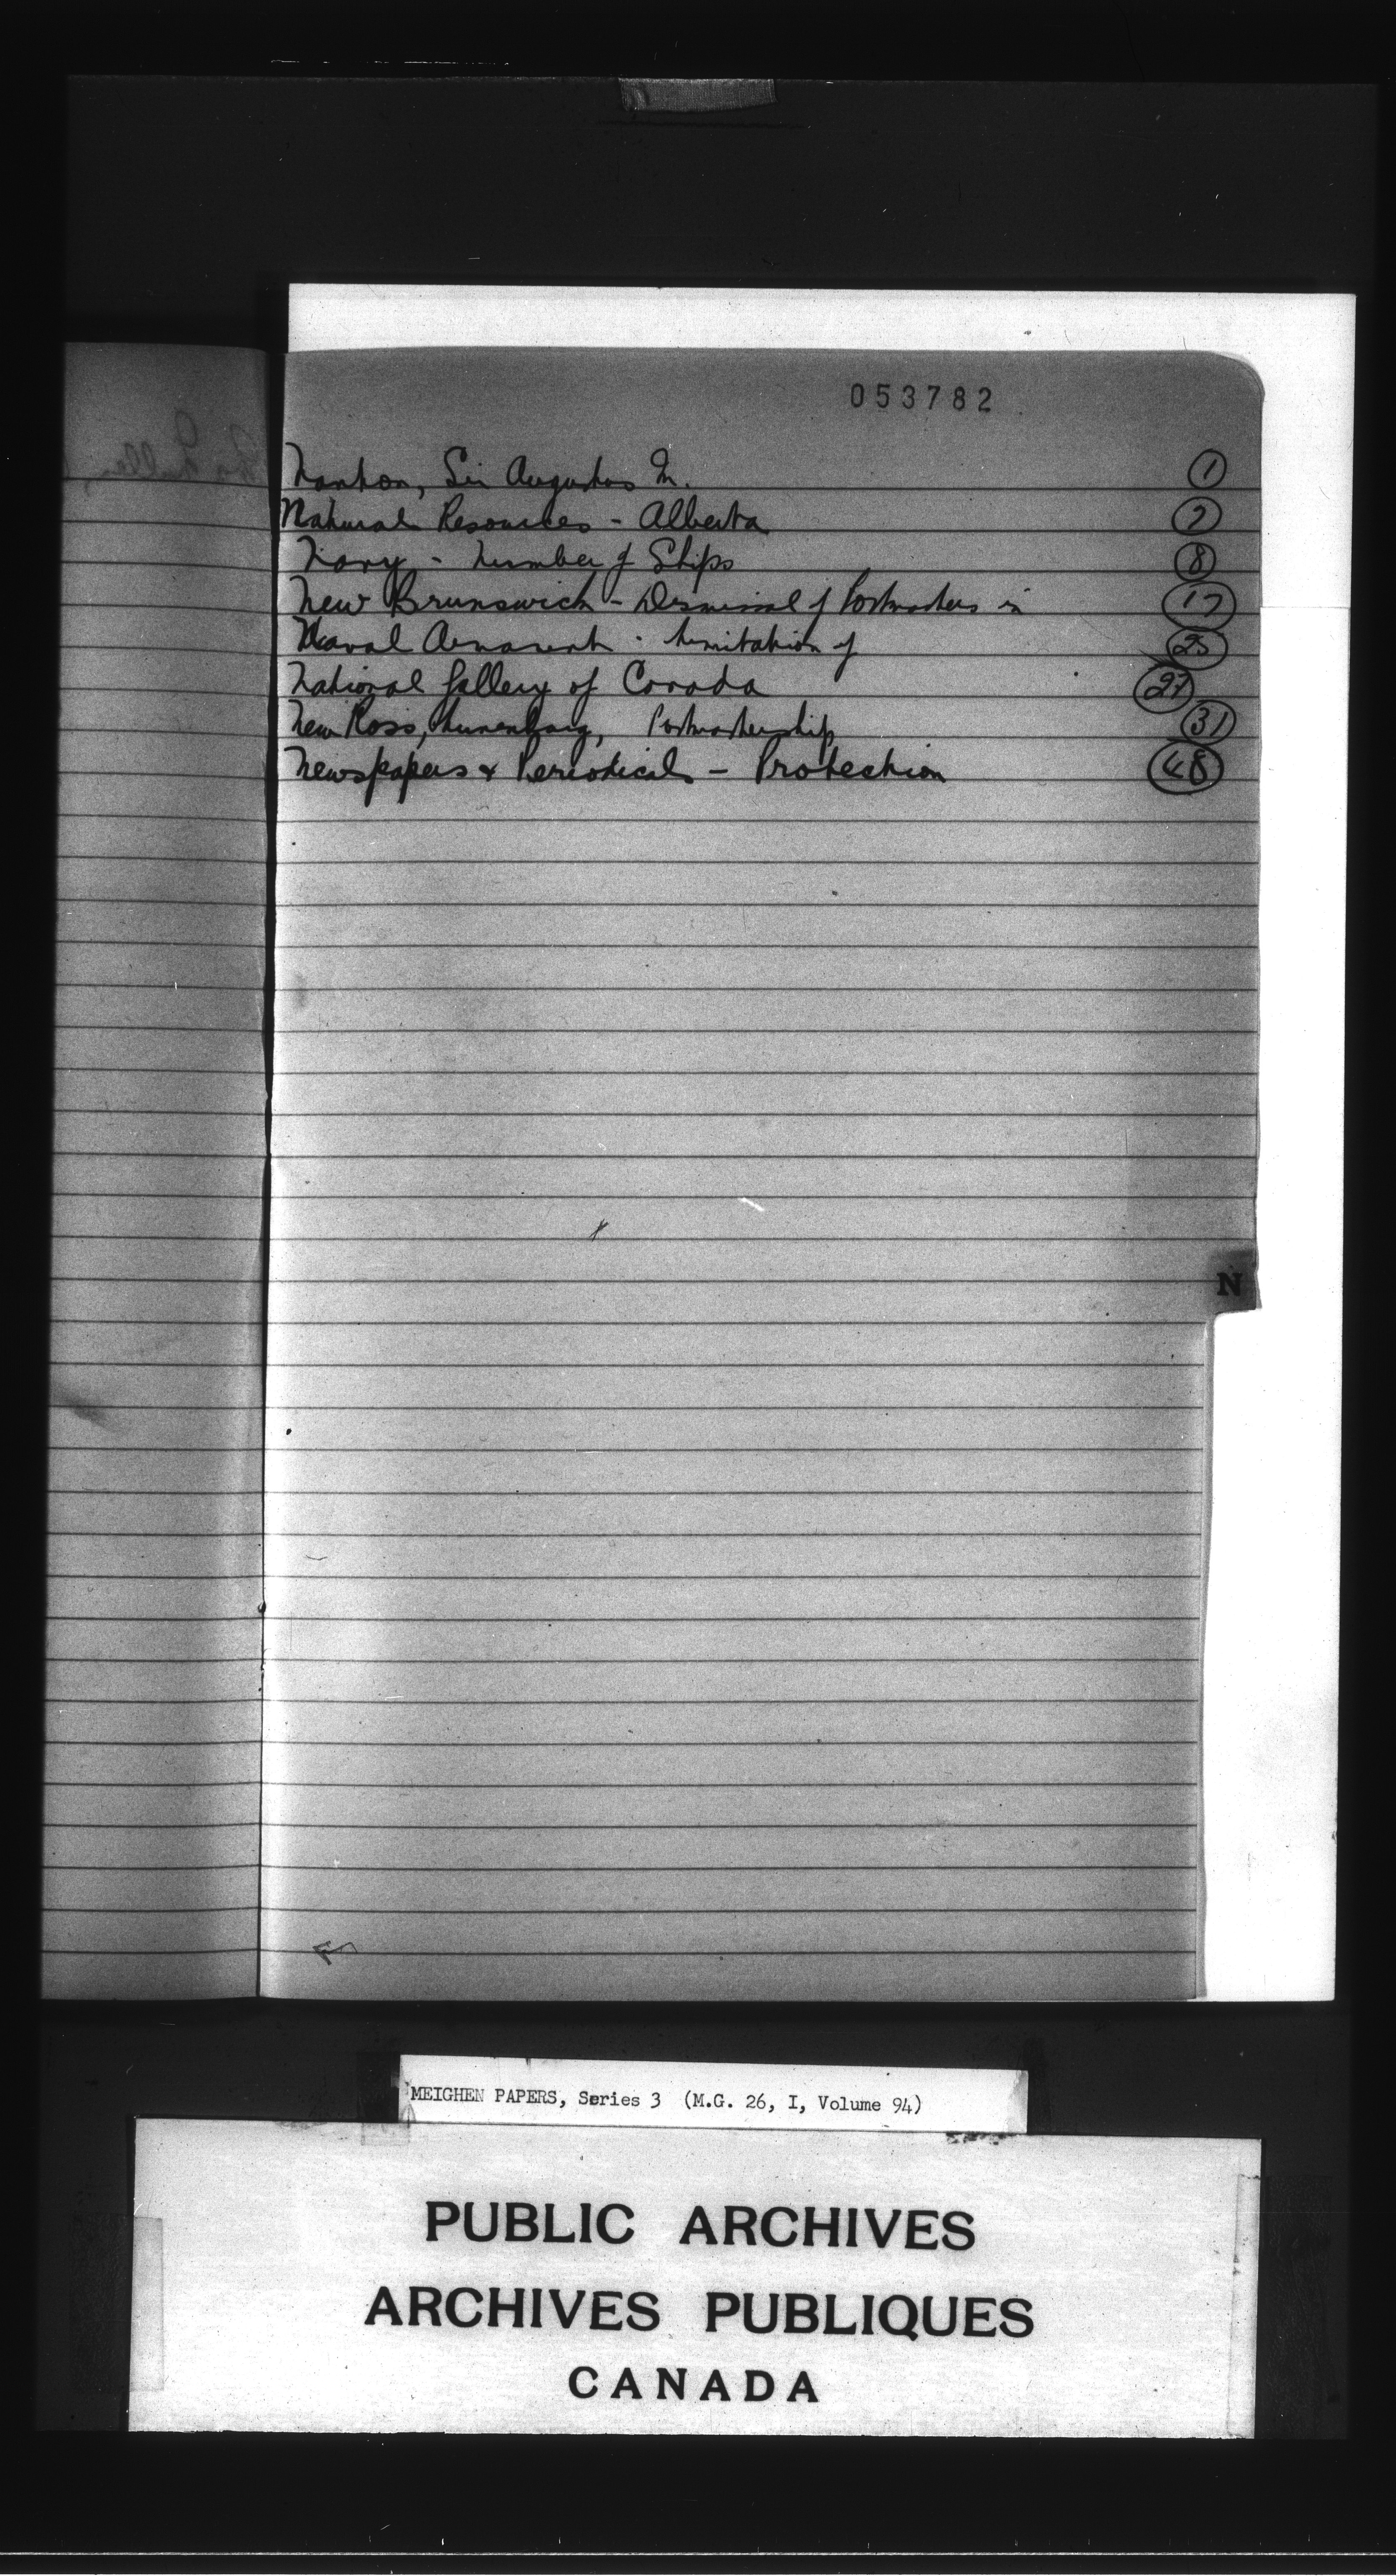 053782
Nanton, Sir Augustus M. 1
Natural Resources - Alberta 7
Navy - Number of Ships 8
New Brunswick - Dismissal of Postmasters in 17
Naval Armament - Limitation of 25
National Gallery of Canada 27
New Ross, Lunenburg, Postmastership 31
Newspapers & Periodicals - Protection 48
N
MEIGHEN PAPERS, Series 3 (M.G. 26, I, Volume 94)
PUBLIC ARCHIVES
ARCHIVES PUBLIQUES
CANADA